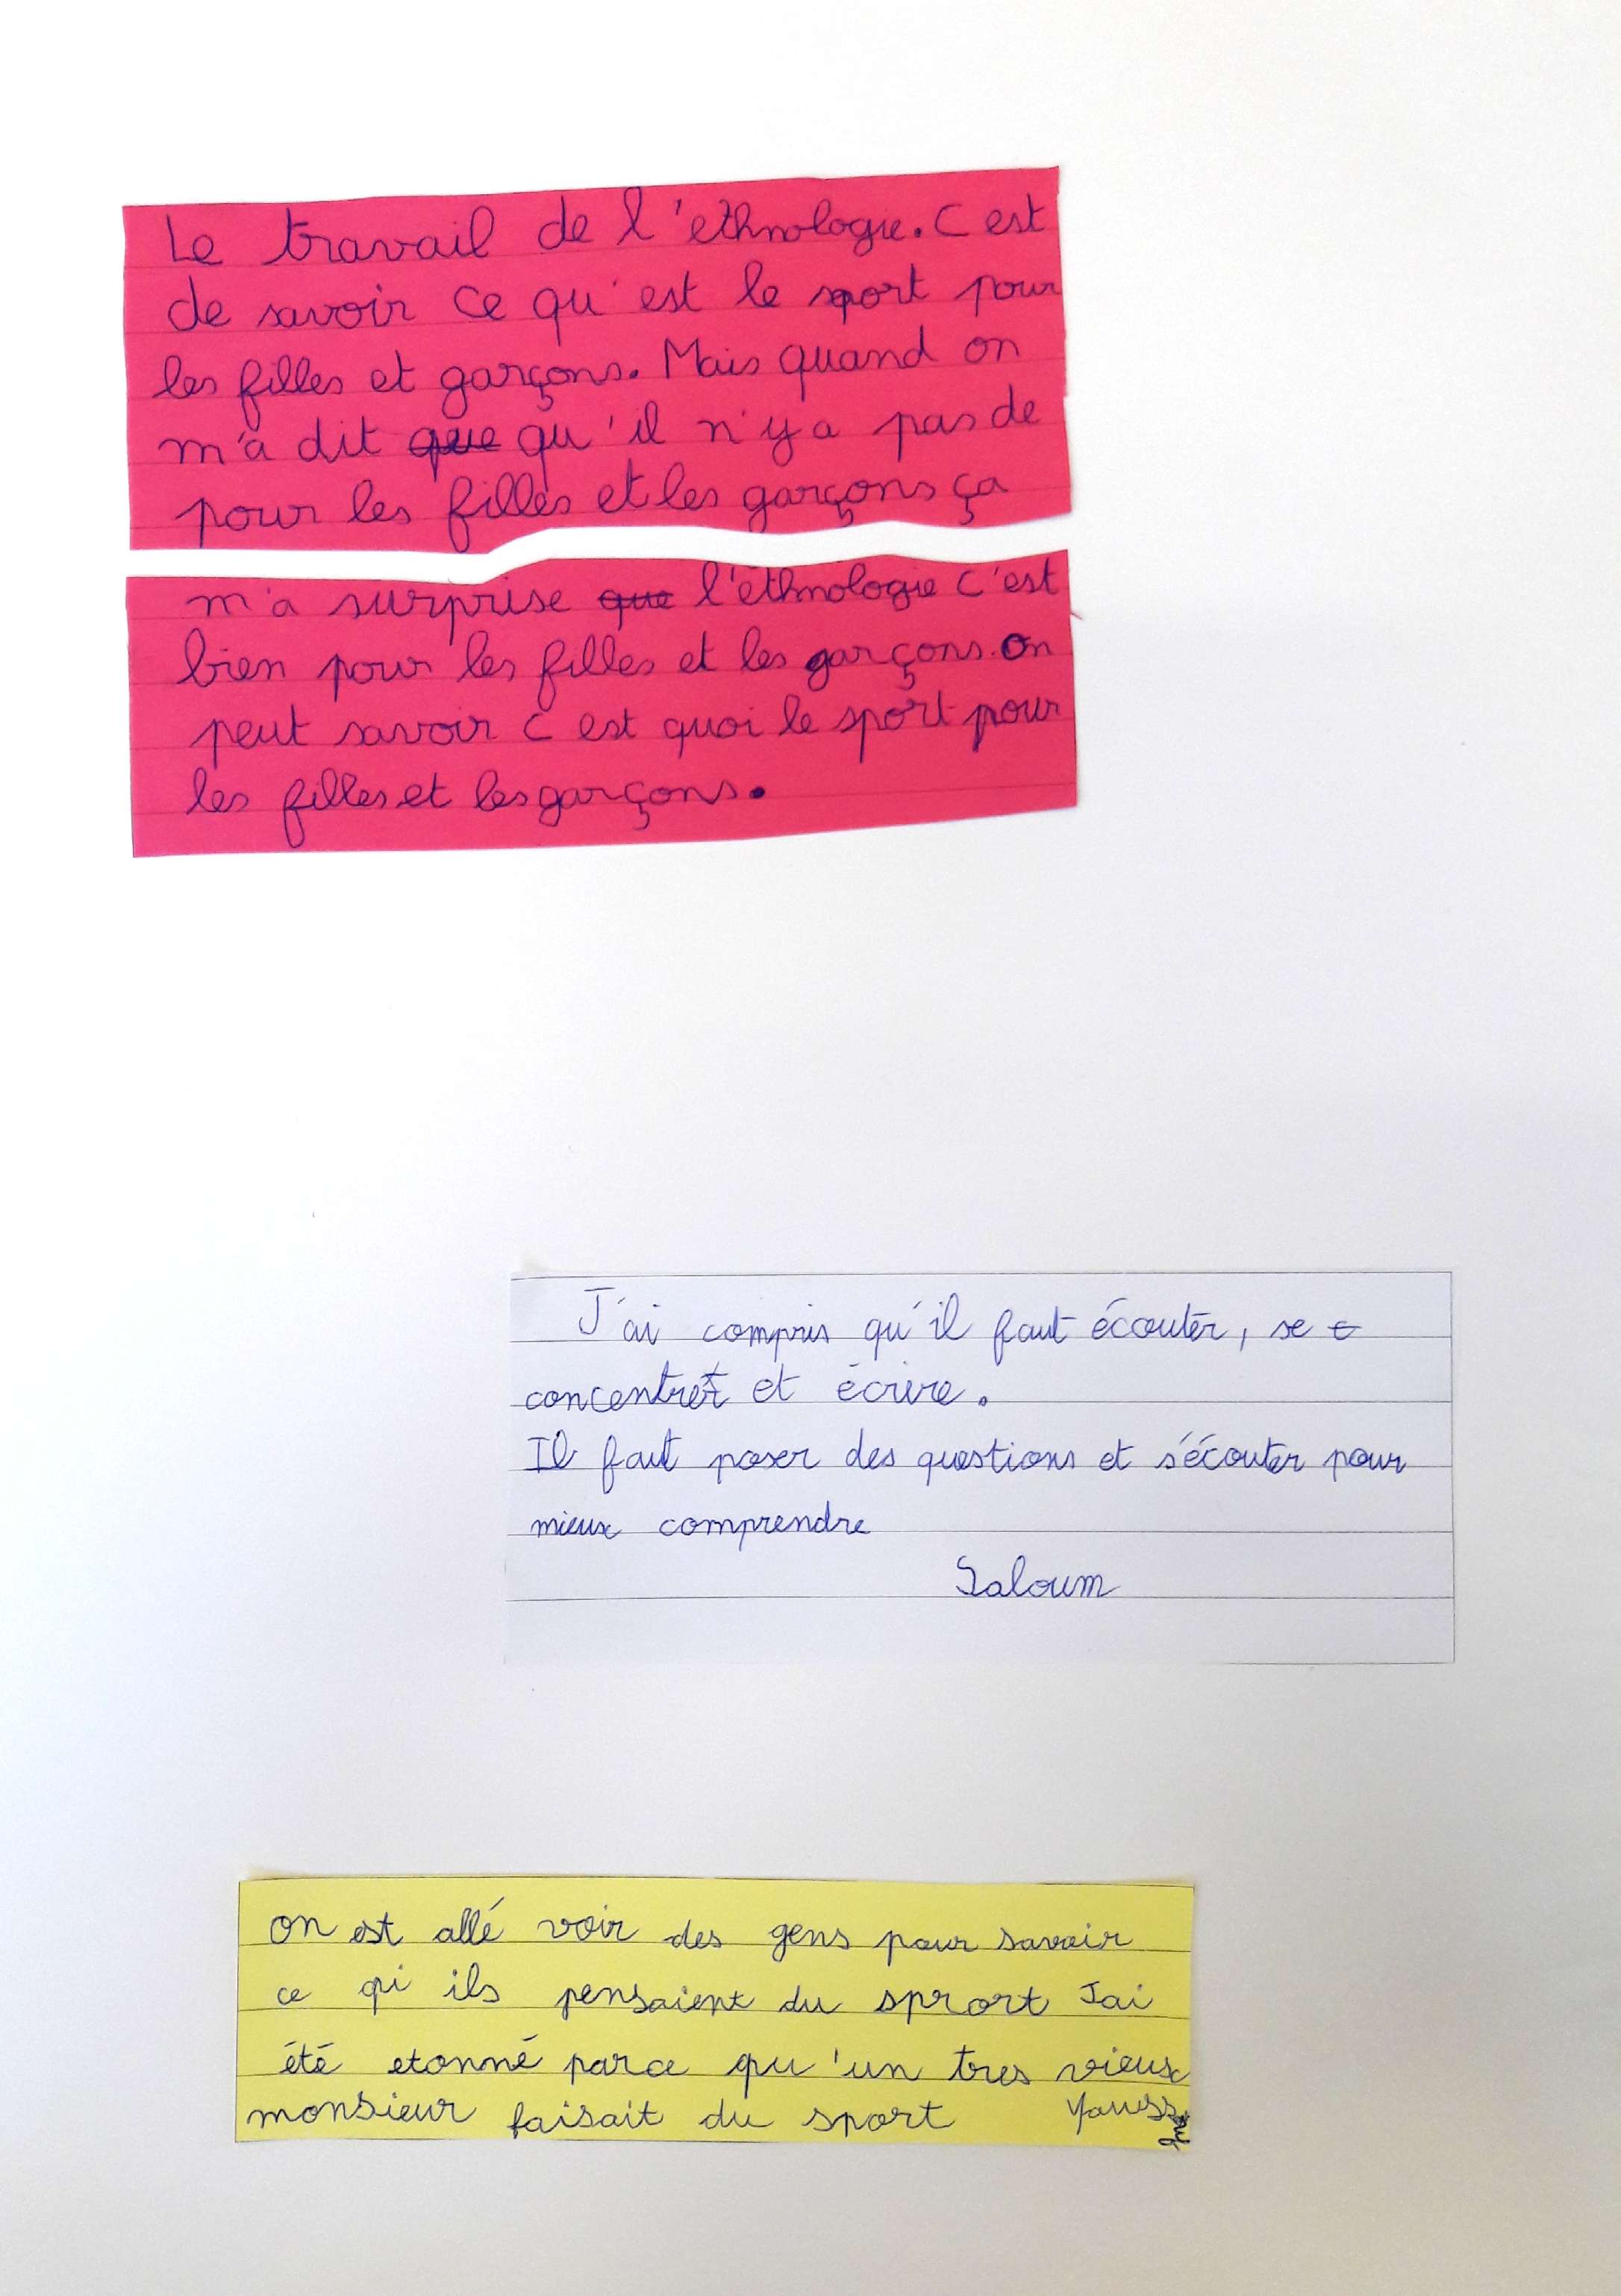 Le travail de l'ethnologie. C est
de savoir ce qu'est le sport pour
les filles et garçons. Mais quand on
m'a dit que qu'il n'y a pas de
pour les filles et les garçons ça
m'a surprise que l'éthnologie c'est
bien pour les filles et les garçons. On
peut savoir c est quoi le sport pour
les filles et les garçons.
J'ai compris qu'il faut écouter, se c
concentrer et écrire.
Il faut poser des questions et s'écouter pour
mieux comprendre
Saloum
on est allé voir des gens pour savoir
ce qi ils pensaient du sprort Jai
été etonné parce qu'un tres vieux
monsieur faisait du sport